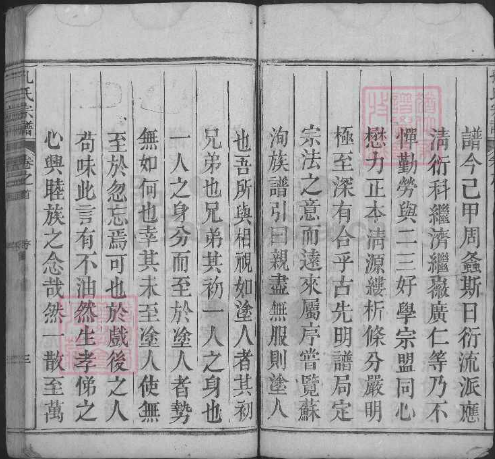 譜今已甲周螽斯日衍流派應
清衍科繼濟繼嚴廣仁等乃不
憚勤勞與二三好學宗盟同心
懋力正本清源縷析條分嚴明
極至深有合乎古先明譜局定
宗法之意而遠來屬序嘗覽蘇
洵族譜引曰親盡無服則塗人
也吾所與相視如塗人者其初
兄弟也兄弟其初一人之身也
一人之身分而至於塗人者勢
無如何也幸其未至塗人使無
至於忽忘焉可也於戲後之人
苟味此言有不油然生孝悌之
心興睦族之念哉然一散至萬
氏宗譜
卷之首
三